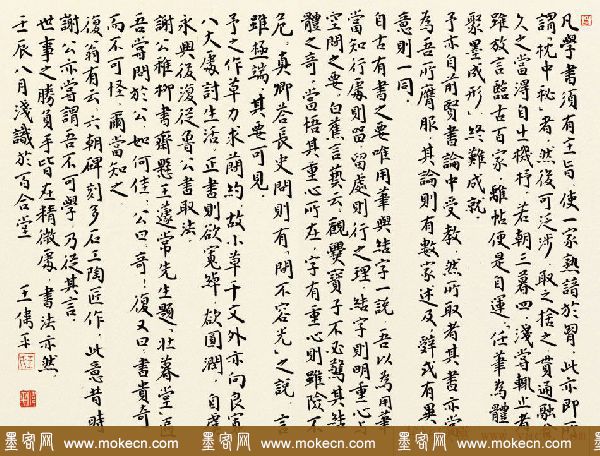 凡學書須有主旨使一家熟諳於胃此亦即
謂「枕中秘」者然後可泛涉取之捨之貫通融
久之當得自生機杼若朝三暮四淺嘗輒止者
雖放言臨古百家離帖便是自運任華為體
聚墨成形終難成就
予亦自前賢書論中受教然所取者其書亦當
為吾所膺服其論則有數家述及辭或有異
意則一同
自古有書之要唯用華與結字一說吾以為用華
當知行處則留留處則行之理結字則明重心與
空間之要白蕉言藝云觀爨寶子不必驚其結
體之奇當悟其重心所在字有重心則雖險不
危真卿答長史問則有「間不容光」之說言
雖極端其要可見
予之作草力求簡約故小草千文外亦向良寬
八大處討生活正書則欲寬綽欲圓潤自
永興後復從魯公書取法
謝公稚柳書齋懸王蘧常先生題壯暮堂匾
吾嘗問於公如何佳公曰奇復又曰書貴奇
而不可怪爾當知之
復翁有云六朝碑刻多石工陶匠作此意昔時
謝公亦嘗謂吾不可學乃從其言
世事之勝負手皆在精微處書法亦然
壬辰八月淺識於百合堂 王
墨客网 www.mokecn.com 墨客网 www.mokecn.com 墨客网 www.mokecn.com